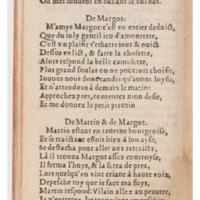 On met souuent en balant le cul bas.
De Margot.
M'amye Margot c'est vn entier deduict,
Que du ioly gentil ieu d'amourette,
C'est vn plaisir s'esbattre iour & nuict
Dessus vn lict, & faire la chosette,
Alors respond la belle camusette,
Plus grand soulas on ne pourroit choisir,
Jouons nous donc tandis qu'auons loysir,
Et n'attendons à demain le matin:
Approchez pres, contentez mon desir,
Et me donnez le petit
De Martin & de Margot.
Martin estant en tauerne bourgeoise,
Et se traictant si bien à son ayse,
Se destacha pour aller aux retraicts,
Là il trouua Margot assez courtoyse,
Il ferma l'huys, & la serra de pres,
Lors quelqu'vn vint criant à haute voix,
Depesche toy que ie face ma foys,
Martin respond: Vilain allez au preau,